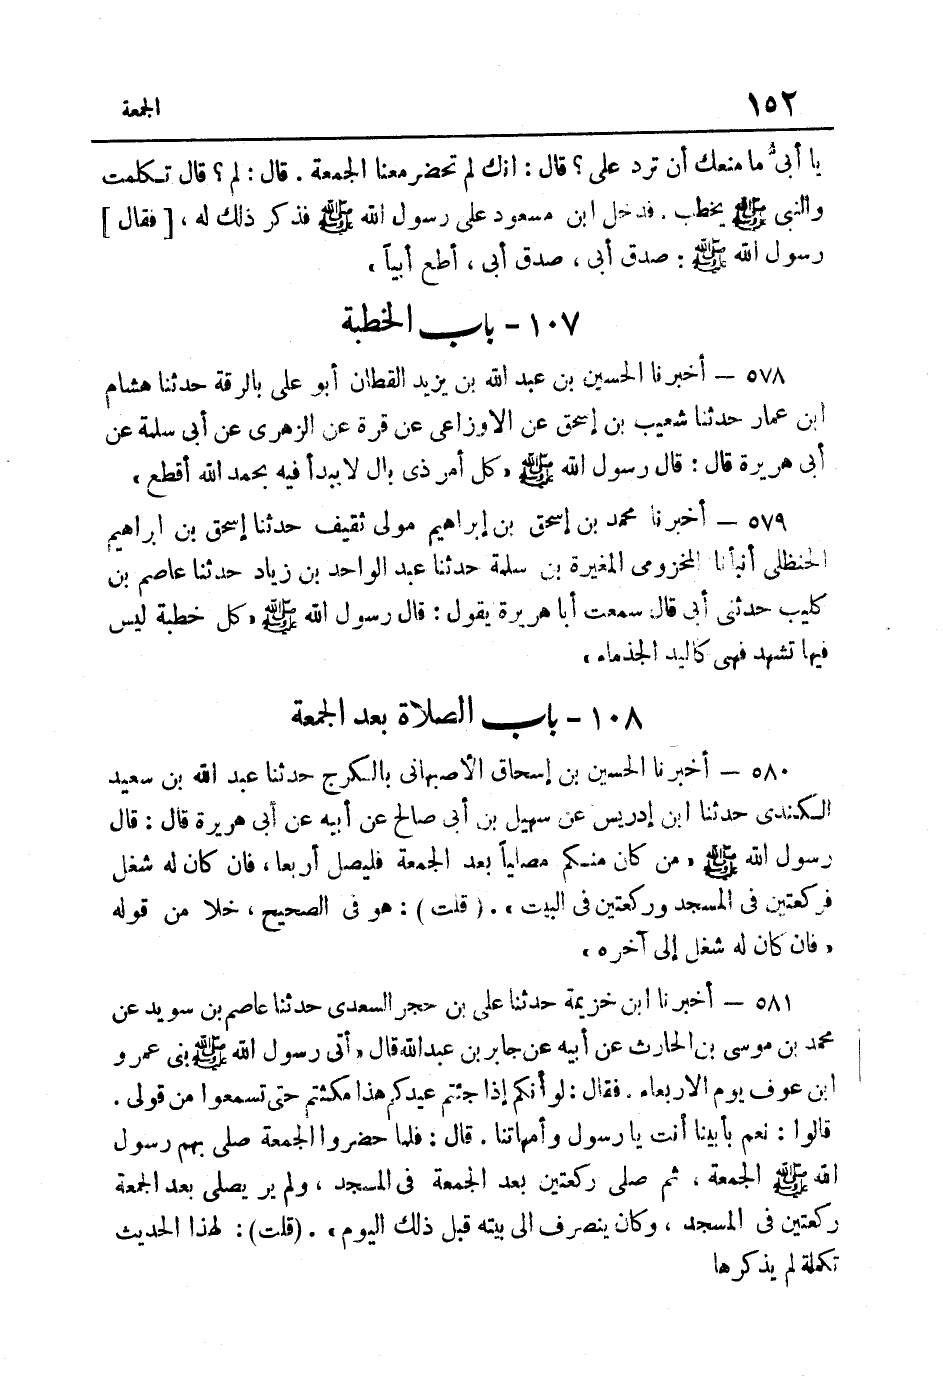 ١٥٢ الجمعة
يا أبىُّ ما منعك أن ترد على ؟ قال : انك لم تحضر معنا الجمعة . قال : لم ؟ قال تكلمت
والنبى ﷺ يخطب . فدخل ابن مسعود على رسول الله ﷺ فذكر ذلك له ، [ فقال ]
رسول الله ﷺ : صدق أبى ، صدق أبى ، أطع أبياً »
١٠٧ - باب الخطبة
٥٧٨ – أخبرنا الحسين بن عبد الله بن يزيد القطان أبو على بالرقة حدثنا هشام
ابن عمار حدثنا شعيب بن إسحق عن الاوزاعى عن قرة عن الزهرى عن أبى سلمة عن
أبى هريرة قال : قال رسول الله ﷺ « كل أمر ذى بال لا يبدأ فيه بحمد الله أقطع »
٥٧٩ – أخبرنا محمد بن إسحق بن إبراهيم مولى ثقيف حدثنا إسحق بن ابراهيم
الحنظلى أنبأنا المخزومى المغيرة بن سلمة حدثنا عبد الواحد بن زياد حدثنا عاصم بن
كليب حدثنى أبى قال سمعت أبا هريرة يقول : قال رسول الله ﷺ « كل خطبة ليس
فيها تشهد فهى كاليد الجذماء »
١٠٨ - باب الصلاة بعد الجمعة
٥٨٠ – أخبرنا الحسين بن إسحاق الأصبهانى بالكرج حدثنا عبد الله بن سعيد
الكندى حدثنا ابن إدريس عن سهيل بن أبى صالح عن أبيه عن أبى هريرة قال : قال
رسول الله ﷺ « من كان منكم مصلياً بعد الجمعة فليصل أربعا ، فان كان له شغل
فركعتين فى المسجد وركعتين فى البيت » . ( قلت ) : هو فى الصحيح ، خلا من قوله
« فان كان له شغل إلى آخره »
٥٨١ – أخبرنا ابن خزيمة حدثنا على بن حجر السعدى حدثنا عاصم بن سويد عن
محمد بن موسى بن الحارث عن أبيه عن جابر بن عبد الله قال « أتى رسول الله ﷺ بنى عمرو
ابن عوف يوم الاربعاء . فقال : لو أنكم إذا جئتم عيدكم هذا مكثتم حتى تسمعوا من قولى .
قالوا : نعم بأبينا أنت يا رسول وأمهاتنا . قال : فلما حضروا الجمعة صلى بهم رسول
الله ﷺ الجمعة ، ثم صلى ركعتين بعد الجمعة فى المسجد ، ولم ير يصلى بعد الجمعة
ركعتين فى المسجد ، وكان ينصرف الى بيته قبل ذلك اليوم » . (قلت) : لهذا الحديث
تكملة لم يذكرها